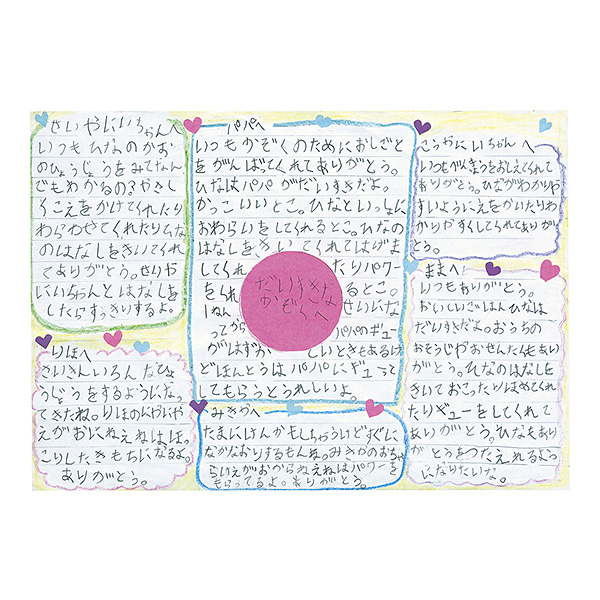 せいやにいちゃんへ
いつもひなのかお
のひょうじょうをみてなん
でもわかるの？やさし
くこえをかけてくれたり
わらわせてくれたりひな
のはなしをきいてくれ
てありがとう。せいや
にいちゃんとはなしを
したらすっきりするよ。
りほへ
さいきんいろんなひょ
うじょうをするようになっ
てきたね。りほのにやにや
えがおにねぇねはほっ
こりしたきもちになるよ。
ありがとう。
パパへ
いつもかぞくのためにおしごと
をがんばってくれてありがとう。
ひなはパパがだいすきだよ。
かっこいいとこ。ひなといっしょに
おわらいをしてくれるとこ。ひなの
はなしをきいてくれてはげま
してくれたりパワー
をくれるとこ。
1ねんせいにな
ってからパパのギュー
がはずかしいときもあるけ
どほんとうはパパにギュっと
してもらうとうれしいよ。
だいすきな
かぞくへ
みきかへ
たまにけんかもしちゃうけどすぐに
なかなおりするもんね。みきかのおちゃ
らいえがおからねぇねはパワーを
もらってるよ。ありがとう。
こうやにいちゃんへ
いつもべんきょうをおしえてくれて
ありがとう。ひながわかりや
すいようにえをかいたりわ
かりやすくしてくれてありが
とう。
ままへ
いつもありがとう。
おいしいごはんひなは
だいすきだよ。おうちの
おそうじやおせんたくもあり
がとう。ひなのはなしを
きいておこったりほめてくれ
たりギューをしてくれて
ありがとう。ひなもあり
がとうをつたえれるよう
になりたいな。